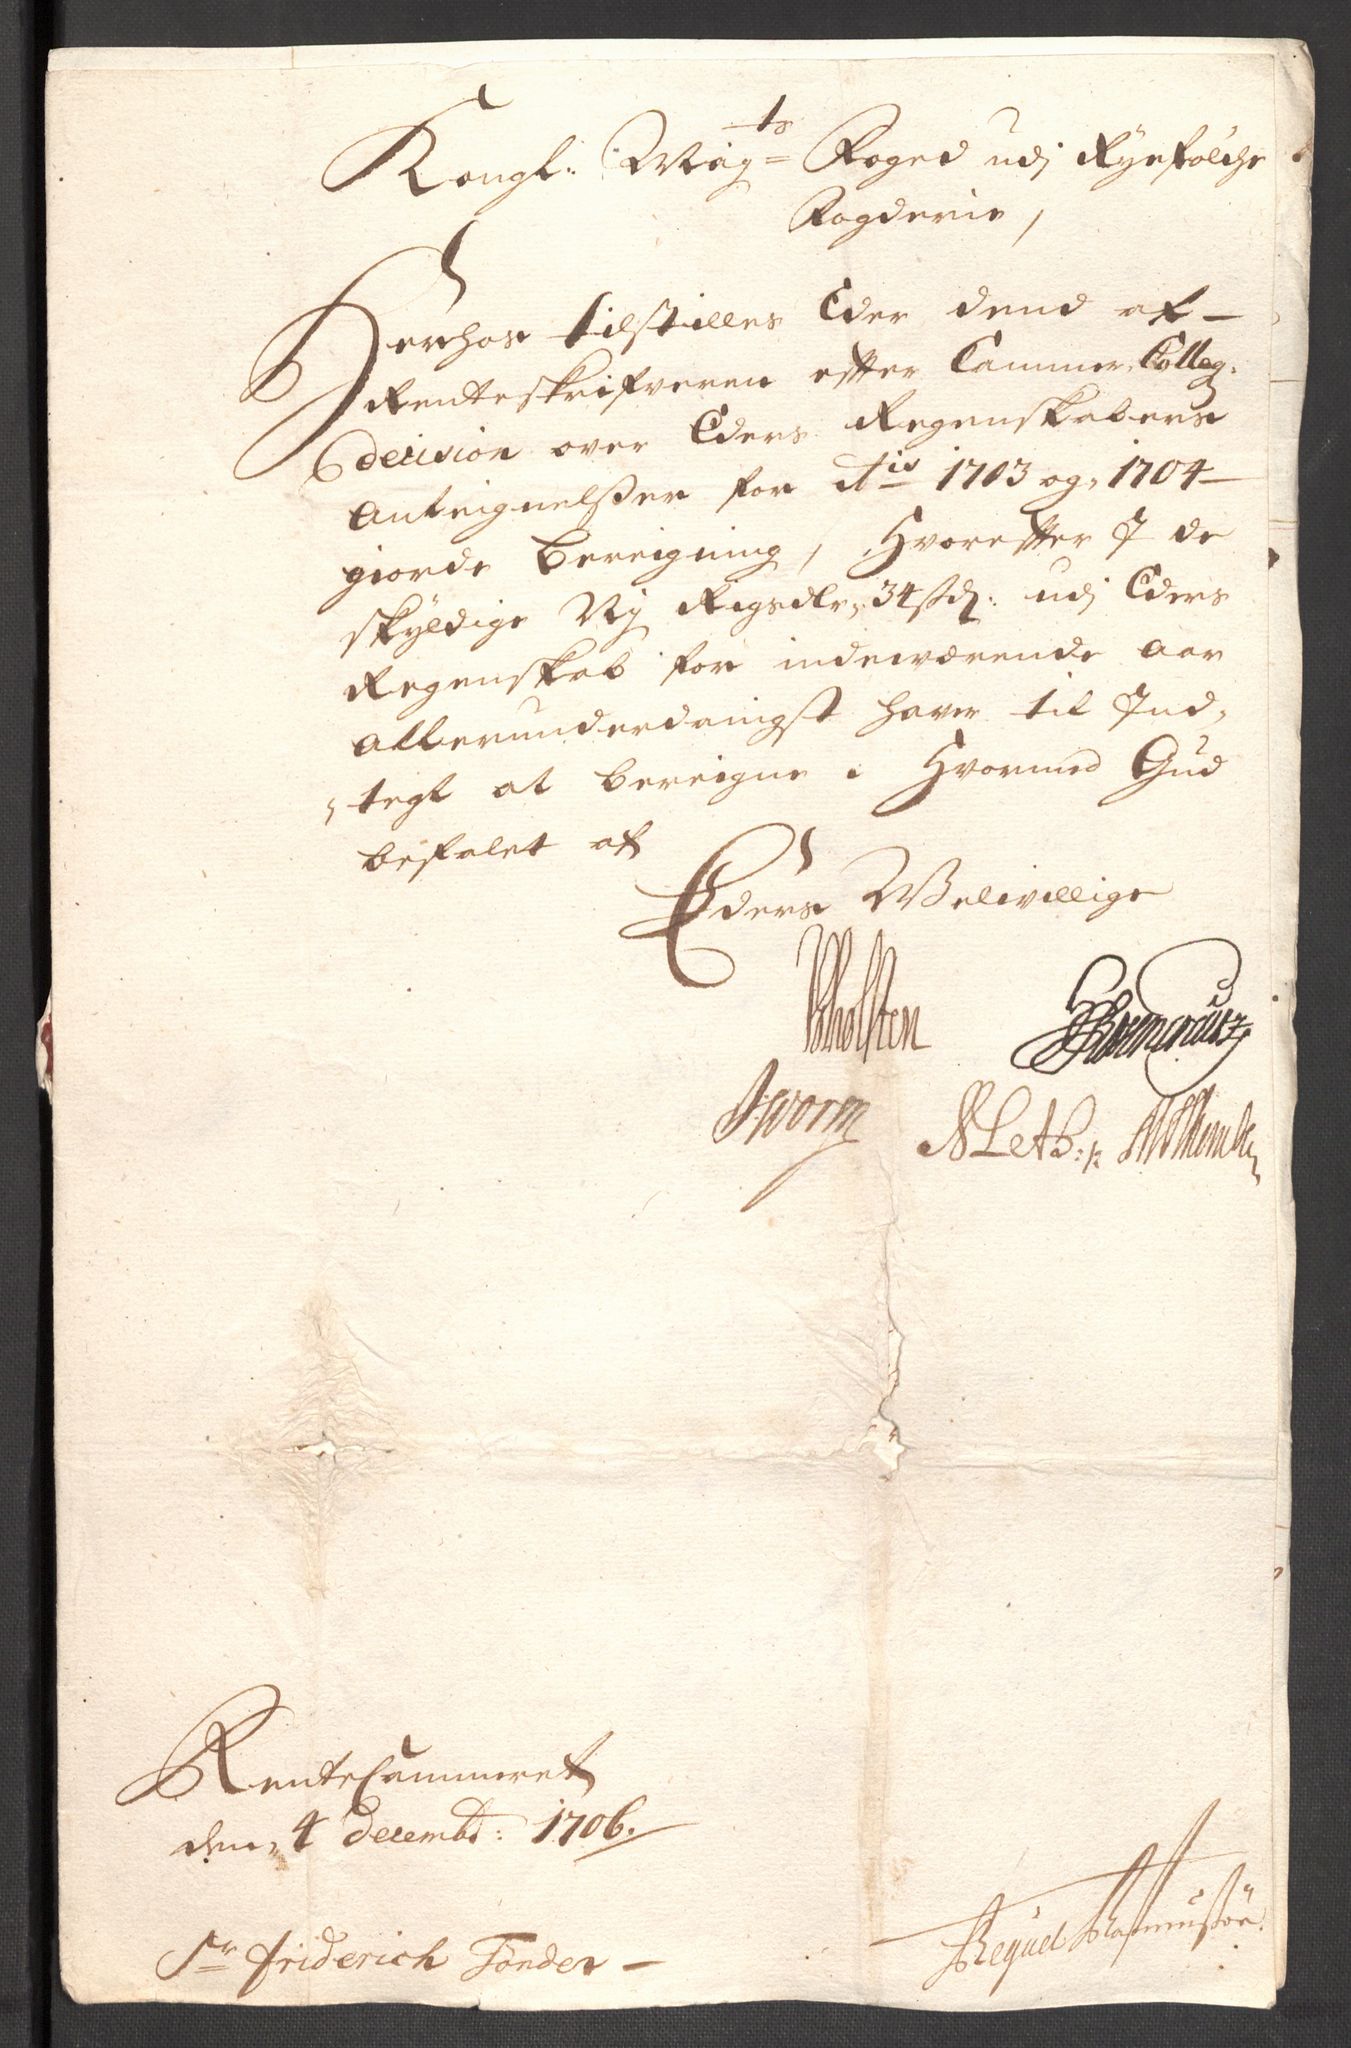 Kongl: Mayts Foged udj Ryefølche
Fogderie,
Herhos tilstilles Eder dend af
Renteskrifveren efter Cammer Colleg:
decision over Eders Regenskabers
Anteignelser for Ao 1703 og 1704
giorde bereigning, Hvorefter I de
skyldige Rigsdlr 34 sk: udj Eders
Regenskab for indeværende aar
allerunderdanigst haver til Ind-
tegt at bereigne. Hvormed Gud
befalet af
Eders Velvillige
Holsten
Worm NLeth:
RenteCammeret
den 4 decembr: 1706.
Sr friderich Tönder
Requel Rasmussøn